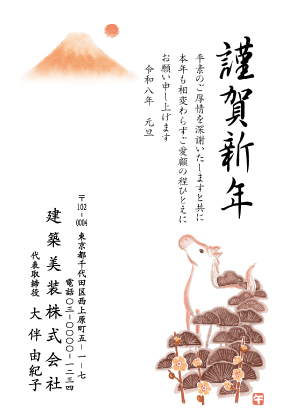 謹賀新年
平素のご厚情を深謝いたしますと共に
本年も相変わらずご愛顧の程ひとえに
お願い申し上げます
令和八年 元旦
〒102-0004
東京都千代田区西上原町五-一-七
電話〇三-〇〇〇〇-一二三四
建築美装株式会社
代表取締役 大伴由紀子
午